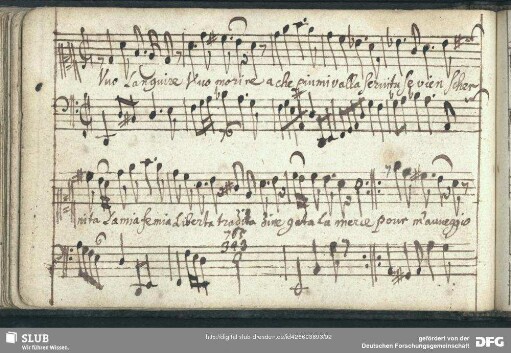 Vuo Languire Vuo morire a che piu mi valla Servitu se vien scher
nita La mia fe mia Liberta tradita di negata La merce pour m'auueggio
76
765
343
SLUB
Wir führen Wissen.
http://digital.slub-dresden.de/id426603893/92
gefördert von der
Deutschen Forschungsgemeinschaft
DFG